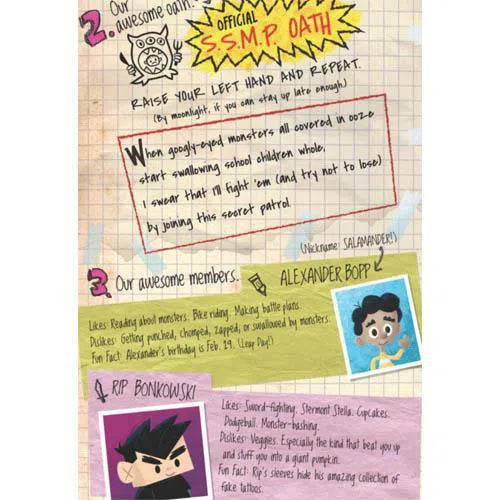 2. Our
awesome oath:
OFFICIAL
S.S.M.P. OATH
RAISE YOUR LEFT HAND AND REPEAT.
(By moonlight, if you can stay up late enough)
When googly-eyed monsters all covered in ooze
start swallowing school children whole,
I swear that I'll fight 'em (and try not to lose)
by joining this secret patrol.
(Nickname: SALAMANDER!)
3. Our awesome members.
ALEXANDER BOPP
Likes: Reading about monsters. Bike riding. Making battle plans.
Dislikes: Getting punched, chomped, zapped, or swallowed by monsters.
Fun Fact: Alexander's birthday is Feb. 29. (Leap Day!)
RIP BONKOWSKI
Likes: Sword-fighting. Stermont Stella. Cupcakes.
Dodgeball. Monster-bashing.
Dislikes: Veggies. Especially the kind that beat you up
and stuff you into a giant pumpkin.
Fun Fact: Rip's sleeves hide his amazing collection of
fake tattoos.